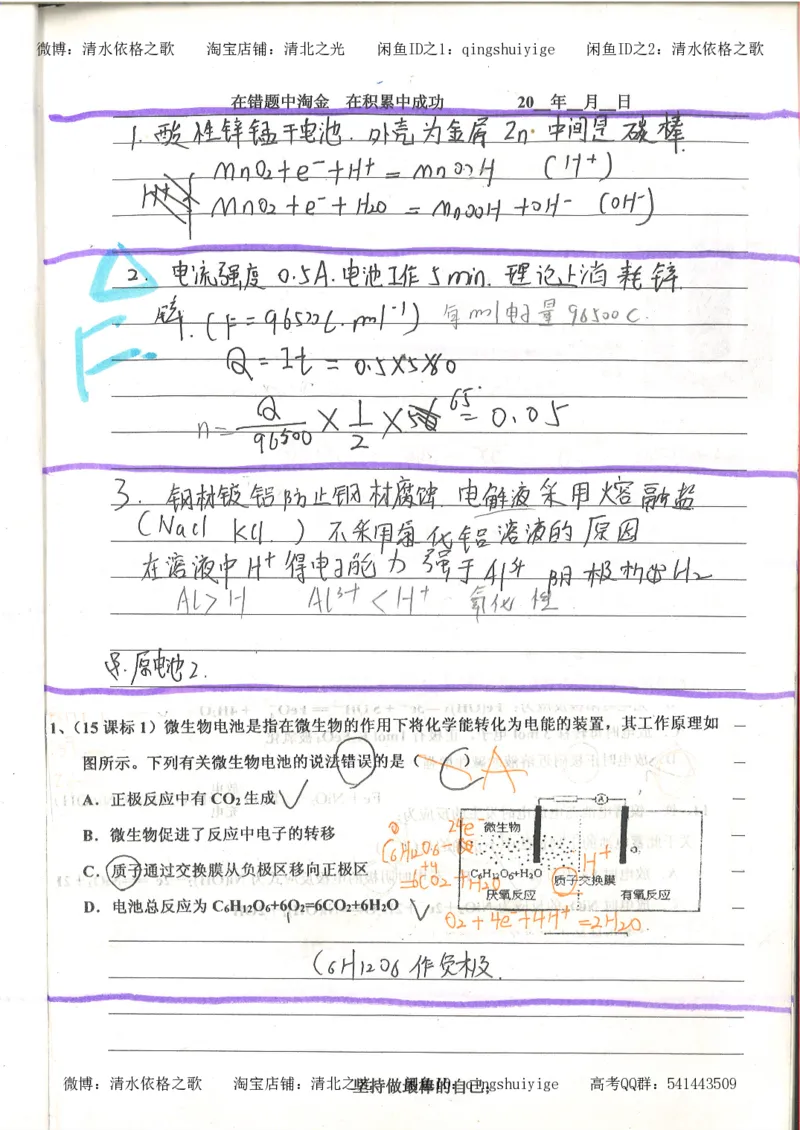 微博：清水依格之歌 淘宝店铺：清北之光 闲鱼ID之1：qingshuiyige 闲鱼ID之2：清水依格之歌
在错题中淘金 在积累中成功 20__年__月__日
1. 酸性锌锰干电池. 外壳为金属Zn. 中间是碳棒.
MnO2+e⁻+H⁺=MnOOH (H⁺)
MnO2+e⁻+H2O=MnOOH+OH⁻ (OH⁻)
2. 电流强度 0.5A. 电池工作 5min. 理论上消耗锌
锌. (F=96500C·mol⁻¹) 每mol电量 96500C.
Q=It=0.5×5×60
n=Q/96500×1/2×65=0.05
3. 钢材镀铝防止钢材腐蚀. 电解液采用熔融盐
(NaCl KCl.) 不采用氯化铝溶液的原因
在溶液中H⁺得电子能力强于Al³⁺ 阴极析出H2
Al>H Al³⁺<H⁺ 氧化性
原电池2.
1、（15课标1）微生物电池是指在微生物的作用下将化学能转化为电能的装置，其工作原理如
图所示。下列有关微生物电池的说法错误的是（C） A
A．正极反应中有CO2生成
B．微生物促进了反应中电子的转移
C．质子通过交换膜从负极区移向正极区
D．电池总反应为C6H12O6+6O2=6CO2+6H2O
微生物
O2
C6H12O6+H2O
质子交换膜
厌氧反应 有氧反应
0 24e⁻
C6H12O6-
+4
=6CO2+H2O
H⁺
O2+4e⁻+4H⁺=2H2O.
C6H12O6作负极.
微博：清水依格之歌 淘宝店铺：清北之光 闲鱼ID：qingshuiyige 高考QQ群：541443509
坚持做最棒的自己；